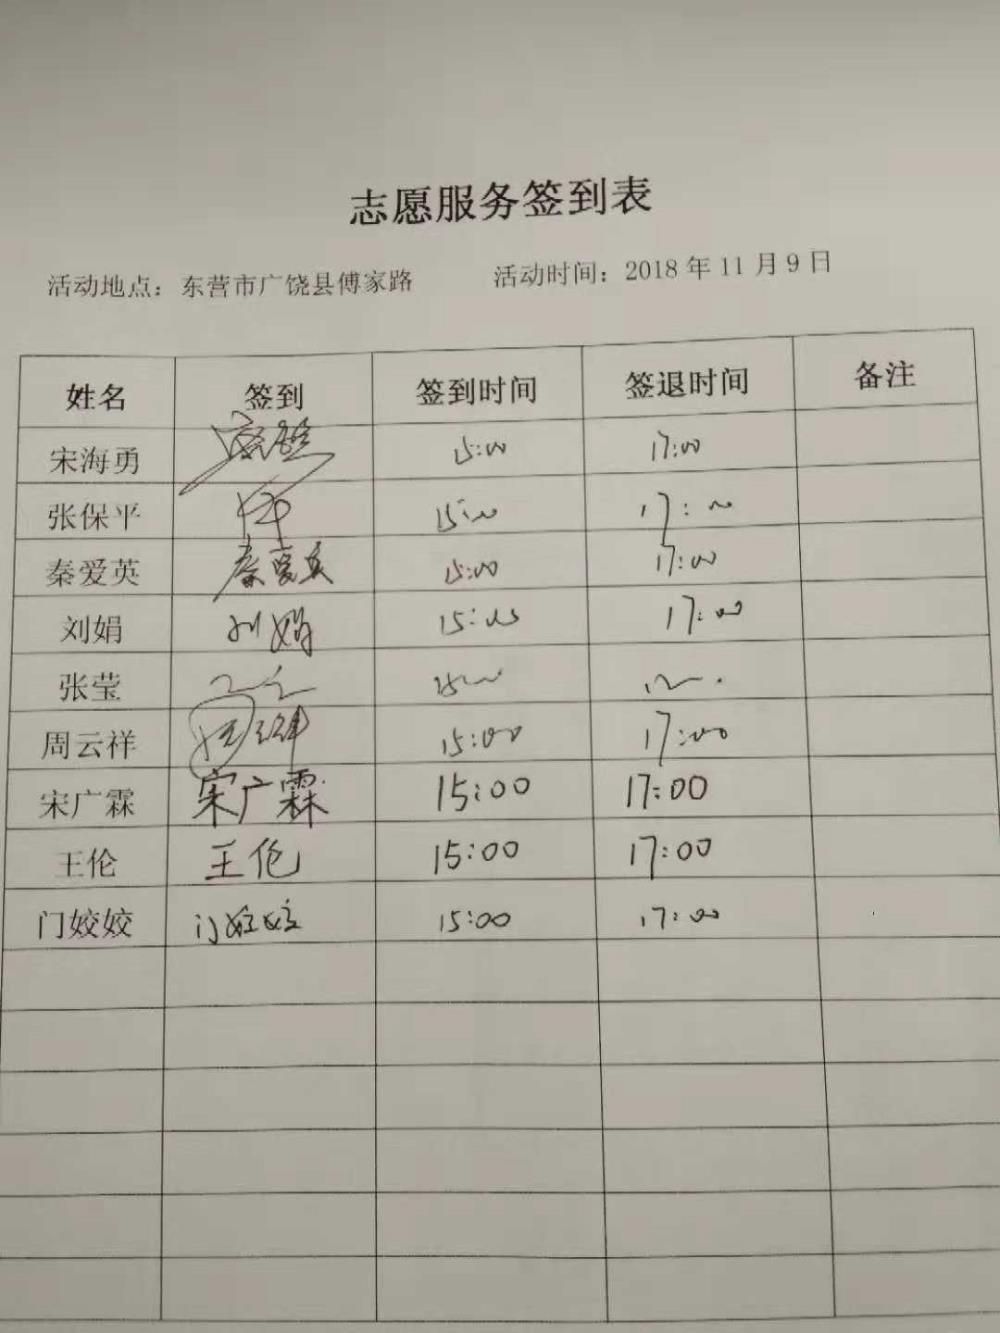 志愿服务签到表
活动地点：东营市广饶县傅家路 活动时间：2018年11月9日
姓名 签到 签到时间 签退时间 备注
宋海勇 15:00 17:00
张保平 15:00 17:00
秦爱英 秦爱英 15:00 17:00
刘娟 刘娟 15:00 17:00
张莹
周云祥 周云祥 15:00 17:00
宋广霖 宋广霖 15:00 17:00
王伦 王伦 15:00 17:00
门姣姣 门姣姣 15:00 17:00